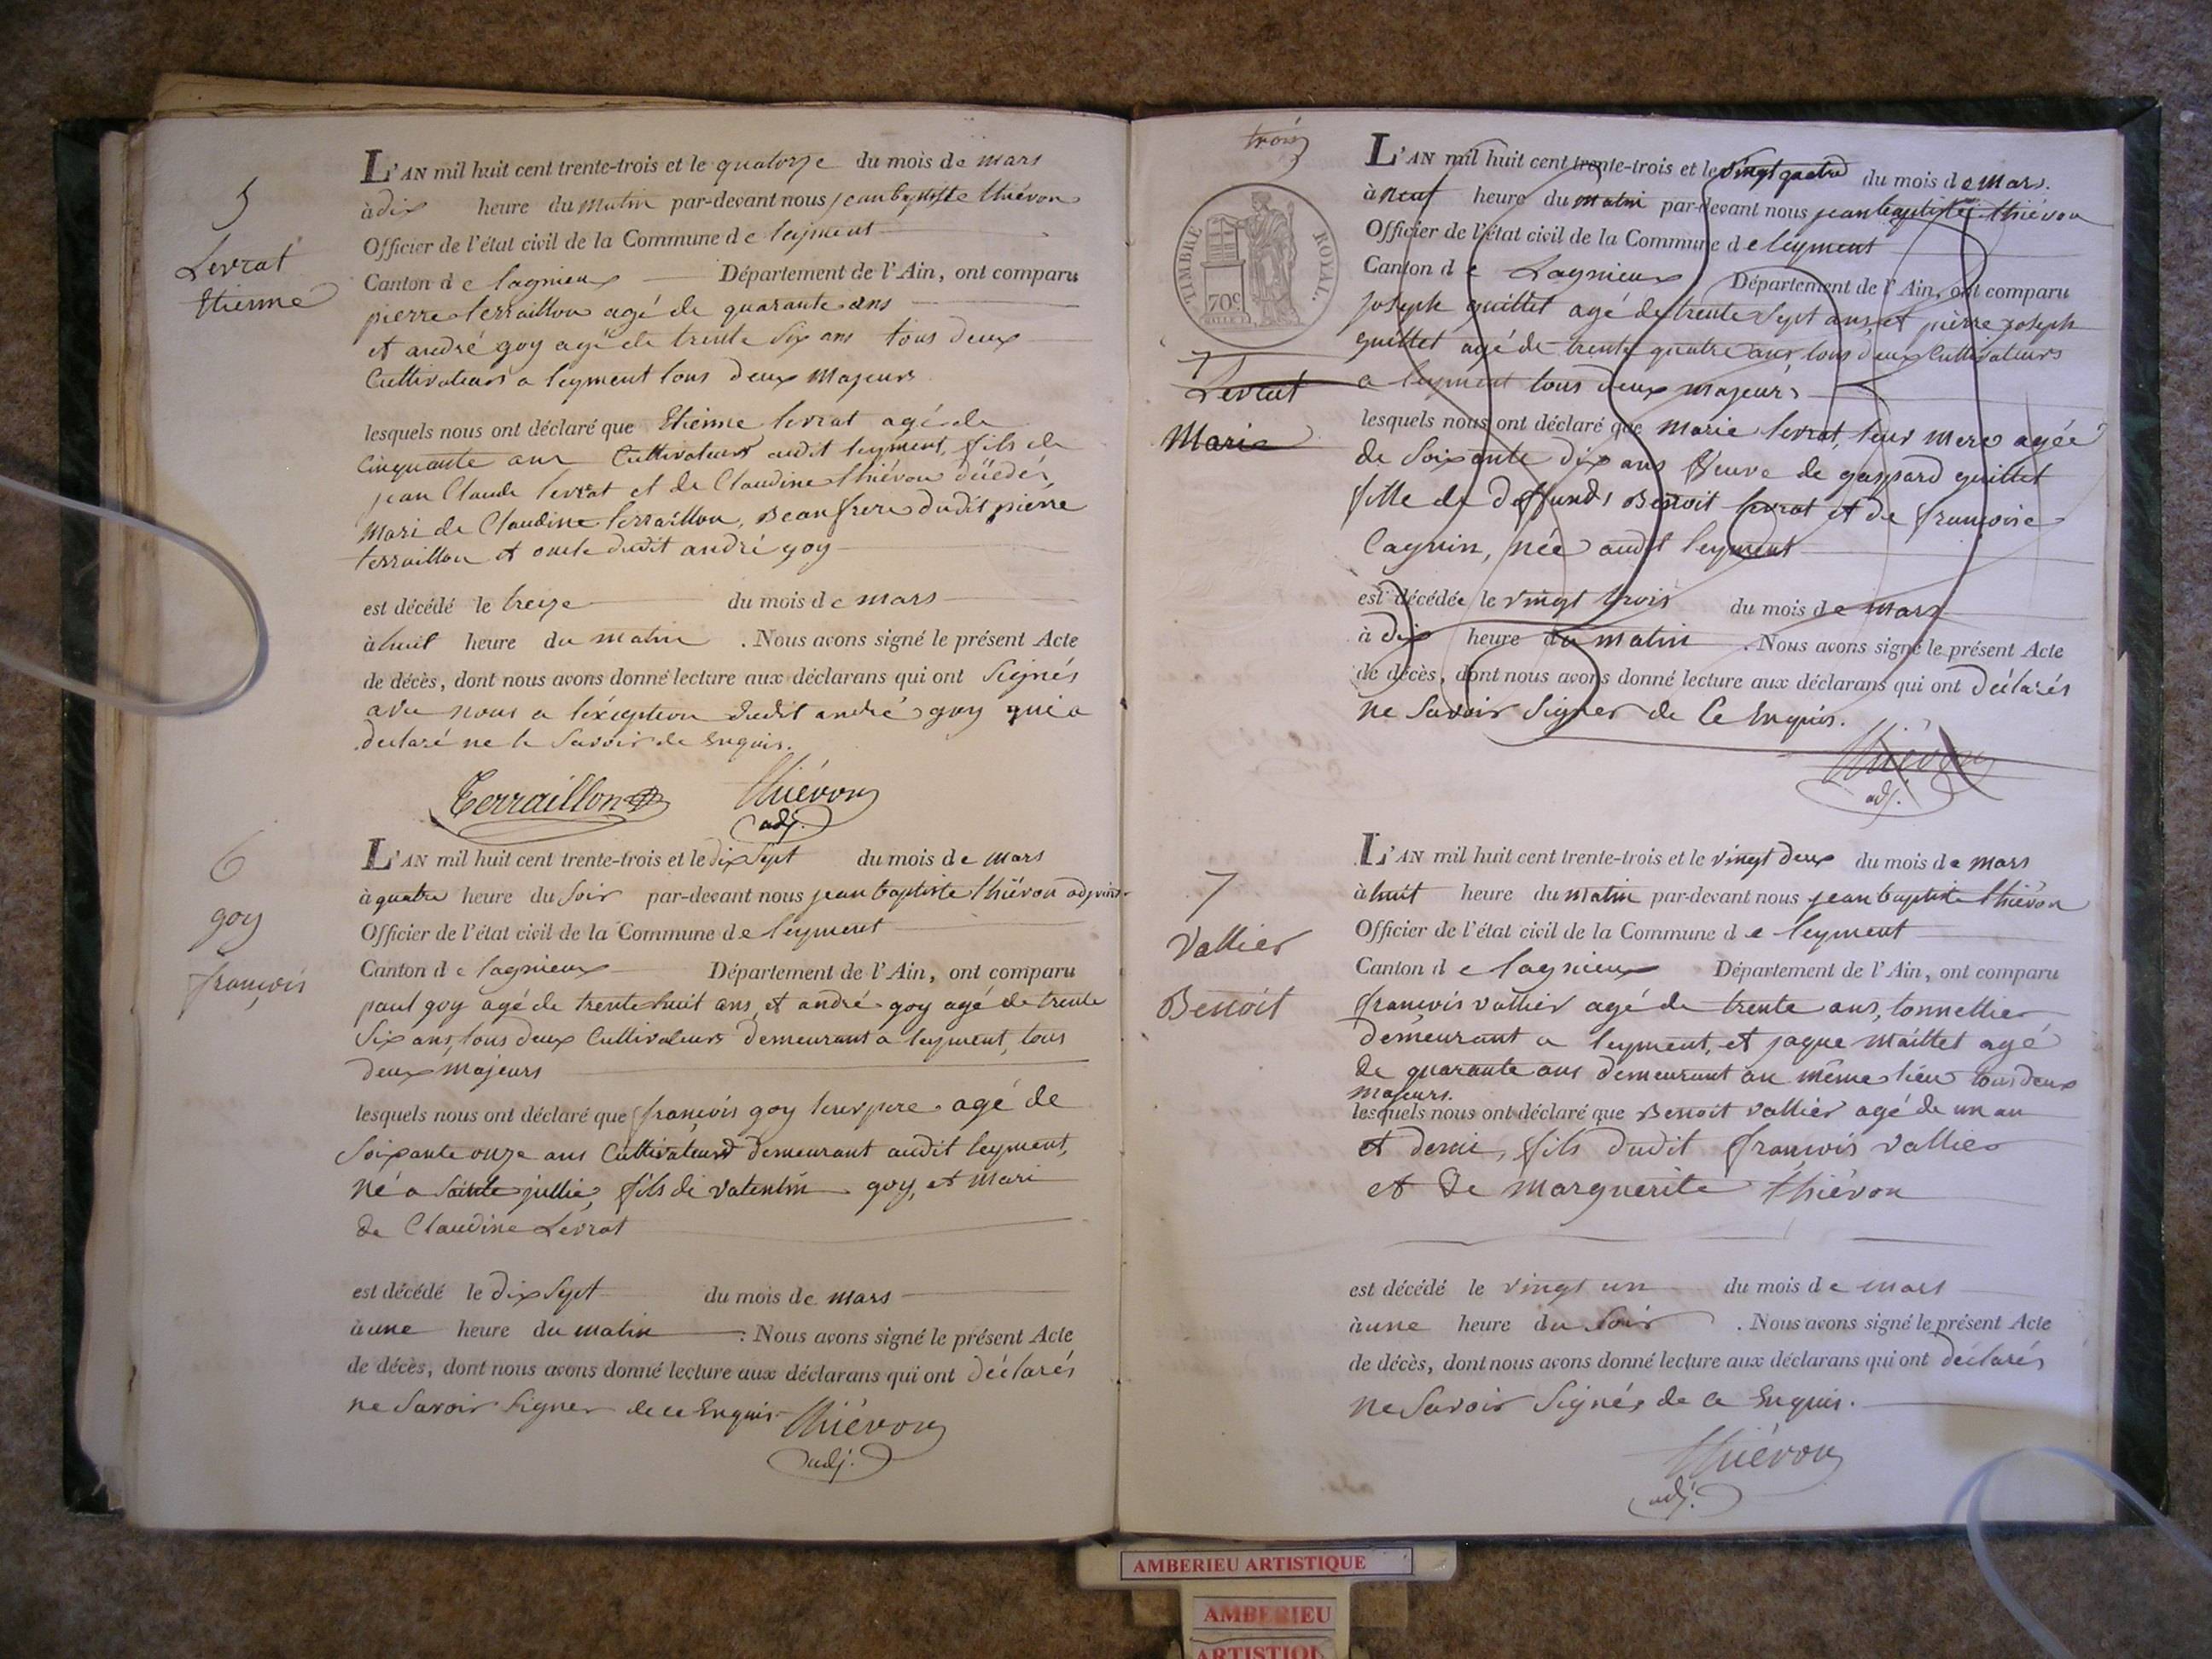 5
Levrat
Etienne
L'AN mil huit cent trente-trois et le quatorze du mois de mars
à dix heure du matin par-devant nous jean baptiste thiévon
Officier de l'état civil de la Commune de leyment
Canton de lagnieux Département de l'Ain, ont comparu
pierre terraillon agé de quarante ans
et andré goy agé de trente six ans tous deux
Cultivateurs a leyment tous deux Majeurs
lesquels nous ont déclaré que Etienne levrat agé de
Cinquante ans Cultivateur audit leyment, fils de
jean Claude levrat et de Claudine thiévon décédés,
Mari de Claudine terraillon, Beaufrere dudit pierre
terraillon et oncle dudit andré goy
est décédé le treize du mois de mars
à huit heure du matin . Nous avons signé le présent Acte
de décès, dont nous avons donné lecture aux déclarans qui ont Signés
avec nous a l'éxception dudit andré goy qui a
declaré ne le Savoir de Enquis.
Terraillon thiévon
adj.
6
goy
françois
L'AN mil huit cent trente-trois et le dix Sept du mois de mars
à quatre heure du Soir par-devant nous jean baptiste thiévon adjoint
Officier de l'état civil de la Commune de leyment
Canton de lagnieux Département de l'Ain, ont comparu
paul goy agé de trente huit ans, et andré goy agé de trente
Six ans, tous deux Cultivateurs demeurans a leyment, tous
deux majeurs
lesquels nous ont déclaré que françois goy leur pere agé de
Soixante onze ans Cultivateur demeurant audit leyment,
né a Sainte jullie, fils de valentin goy, et Mari
de Claudine Levrat
est décédé le dix Sept du mois de mars
à une heure du matin . Nous avons signé le présent Acte
de décès, dont nous avons donné lecture aux déclarans qui ont déclarés
ne Savoir Signer de ce Enquis.
thiévon
adj.
trois
TIMBRE ROYAL.
70c.
7
Levrat
Marie
L'AN mil huit cent trente-trois et le vingt quatre du mois de Mars.
à neuf heure du matin par-devant nous jean baptiste thiévon
Officier de l'état civil de la Commune de leyment
Canton de Lagnieux Département de l'Ain, ont comparu
joseph guillet agé de trente Sept ans, et pierre joseph
guillet agé de trente quatre ans, tous deux Cultivateurs
a leyment tous deux majeurs
lesquels nous ont déclaré que Marie levrat, leur Mere agée
de Soixante dix ans Veuve de gaspard guillet
fille de deffunds Benoit levrat et de françoise
Cagnin, née audit leyment
est décédée le vingt trois du mois de mars
à dix heure du matin . Nous avons signé le présent Acte
de décès, dont nous avons donné lecture aux déclarans qui ont déclarés
ne Savoir Signer de Ce Enquis.
thiévon
adj.
7
Vallier
Benoit
L'AN mil huit cent trente-trois et le vingt deux du mois de mars
à huit heure du Matin par-devant nous jean baptiste thiévon
Officier de l'état civil de la Commune de leyment
Canton de lagnieux Département de l'Ain, ont comparu
françois vallier agé de trente ans, tonnellier
demeurant a leyment, et jaque Maillet agé
de quarante ans demeurant au même lieu tous deux
majeurs.
lesquels nous ont déclaré que Benoit vallier agé de un an
et demi, fils dudit françois vallier
et de Marguerite thiévon
est décédé le vingt un du mois de mars
à une heure du Soir . Nous avons signé le présent Acte
de décès, dont nous avons donné lecture aux déclarans qui ont déclarés
ne Savoir Signés de Ce Enquis.
thiévon
adj.
AMBERIEU ARTISTIQUE
AMBERIEU
ARTISTIQU